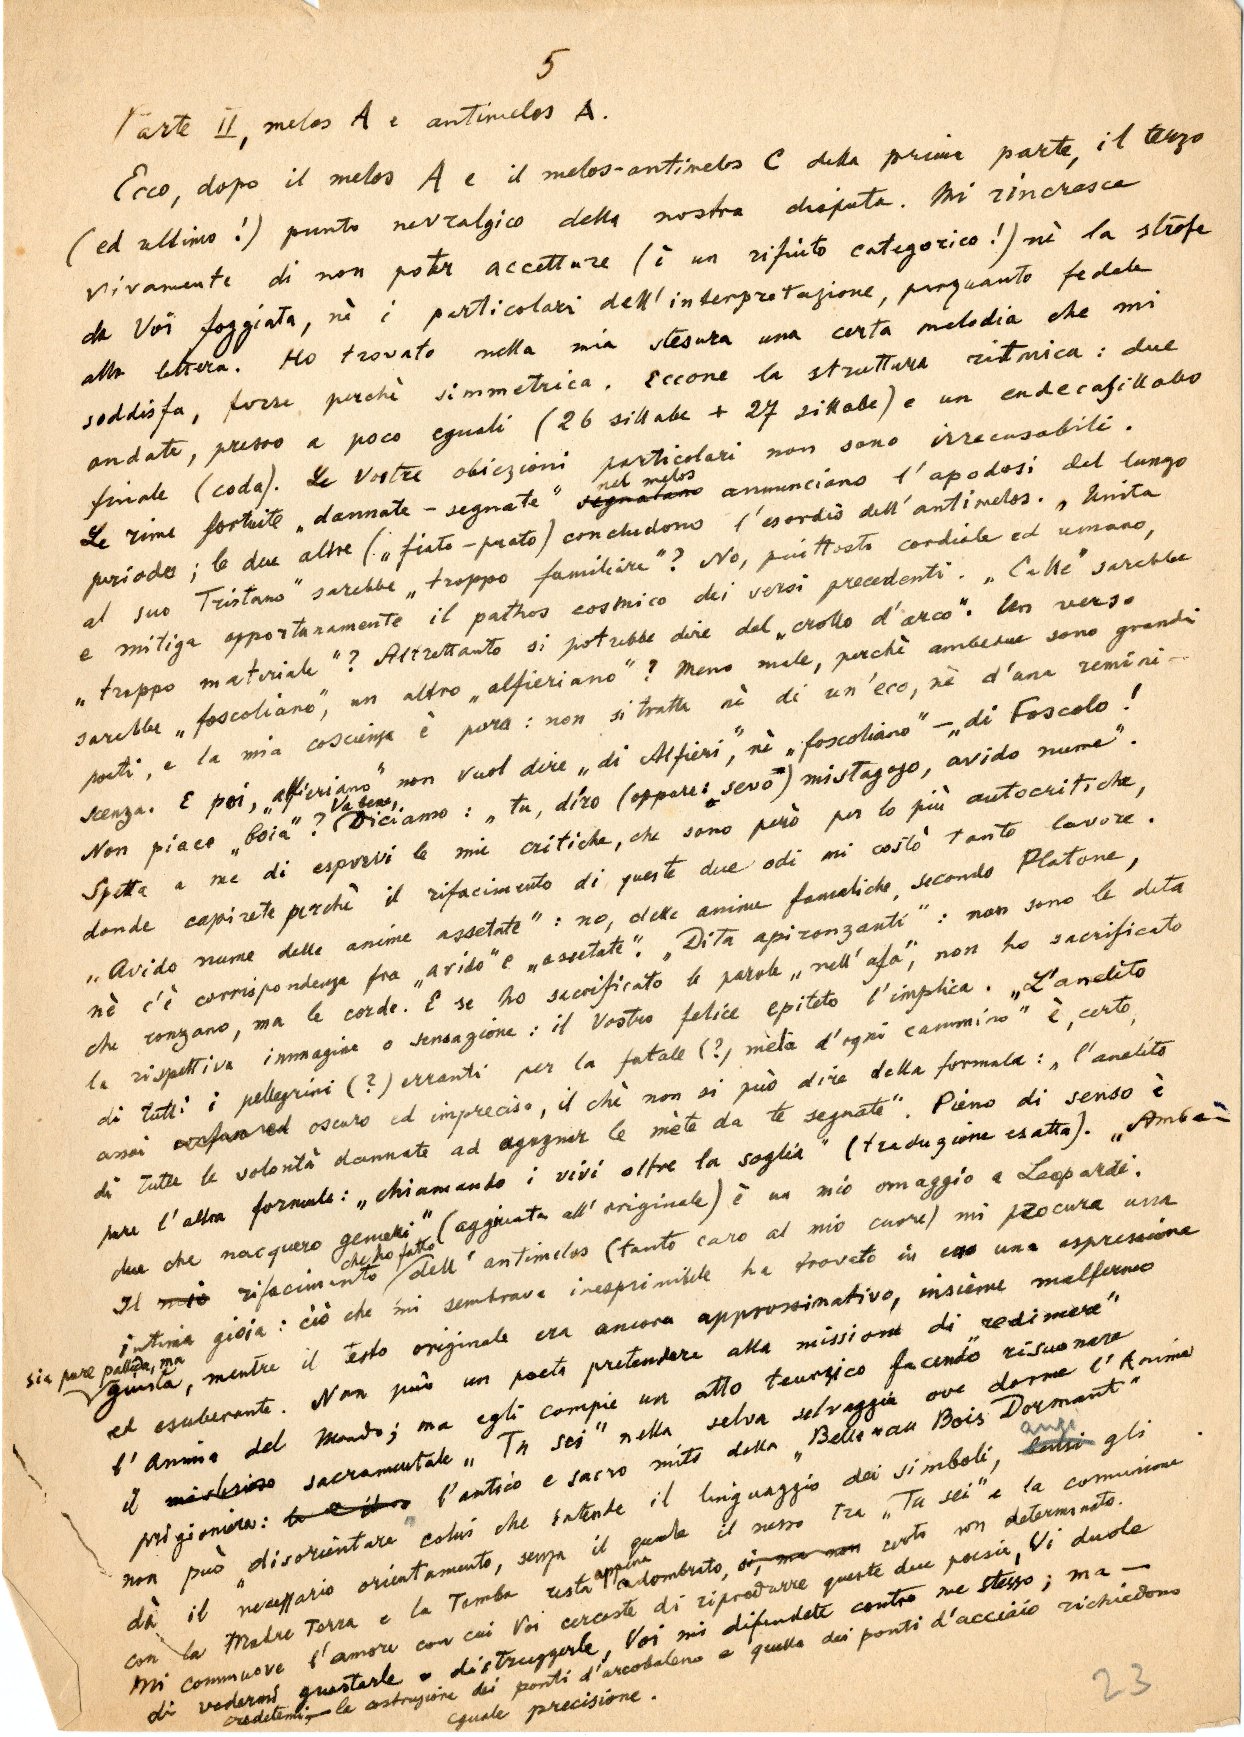 5
Parte II, melos A e antimelos A.
Ecco, dopo il melos A e il melos-antimelos C della prima parte, il terzo
(ed ultimo!) punto nevralgico della nostra disputa. Mi rincresce
vivamente di non poter accettare (è un rifiuto categorico!) nè la strofe
da Voi foggiata, nè i particolari dell'interpretazione, perquanto fedele
alla lettera. Ho trovato nella mia stesura una certa melodia che mi
soddisfa, forse perchè simmetrica. Eccone la struttura ritmica: due
andate, presso a poco eguali (26 sillabe + 27 sillabe) e un endecasillabo
finale (coda). Le Vostre obiezioni particolari non sono irrecusabili.
Le rime fortuite „dannate – segnate" nel melos segnalano annunciano l'apodosi del lungo
periodo; le due altre („fiato – prato) concludono l'esordio dell'antimelos. „Unita
al suo Tristano" sarebbe „troppo familiare"? No, piuttosto cordiale ed umano,
e mitiga opportunamente il pathos cosmico dei versi precedenti. „Calle" sarebbe
„troppo materiale"? Altrettanto si potrebbe dire del „crollo d'arco". Un verso
sarebbe „foscoliano", un altro „alfieriano"? Meno male, perchè ambedue sono grandi
poeti, e la mia coscienza è pura: non si tratta nè di un'eco, nè d'una remini-
scenza. E poi, „alfieriano" non vuol dire „di Alfieri", nè „foscoliano" – „di Foscolo!
Non piace „boia"? Va bene, Diciamo: „tu, diro (oppure: „sevo") mistagogo, avido nume".
Spetta a me di esporvi le mie critiche, che sono però per lo più autocritiche,
donde capirete perchè il rifacimento di queste due odi mi costò tanto lavoro.
„Avido nume delle anime assetate": no, delle anime fameliche, secondo Platone,
nè c'è corrispondenza fra „avido" e „assetate". „Dita apironzanti": non sono le dita
che ronzano, ma le corde. E se ho sacrificato le parole „nell'afa", non ho sacrificato
la rispettiva immagine o sensazione: il Vostro felice epiteto l'implica. „L'anelito
di tutti i pellegrini (?) erranti per la fatale (?) mèta d'ogni cammino" è, certo,
assai oscuro ed impreciso, il chè non si può dire della formula: „l'anelito
di tutte le volontà dannate ad agognar le mète da te segnate". Pieno di senso è
pure l'altra formula: „chiamando i vivi oltre la soglia" (traduzione esatta). „Ambe-
due che nacquero gemelli" (aggiunta all'originale) è un mio omaggio a Leopardi.
Il mio rifacimento che ho fatto dell'antimelos (tanto caro al mio cuore) mi procura una
intima gioia: ciò che mi sembrava inesprimibile ha trovato in esso una espressione
sia pure pallida, ma giusta, mentre il testo originale era ancora approssimativo, insieme malfermo
ed esuberante. Non può un poeta pretendere alla missione di „redimere"
l'Anima del Mondo; ma egli compie un atto teurgico facendo risuonare
il misterioso sacramentale „Tu sei" nella selva selvaggia ove dorme l'Anima
prigioniera: l'antico e sacro mito della „Belle au Bois Dormant"
non può „disorientare" colui che intende il linguaggio dei simboli, anzi gli
dà il necessario orientamento, senza il quale il nesso tra „Tu sei" e la comunione
con la Madre Terra e la Tomba resta appena adombrato, sì, ma non certo non determinato.
Mi commuove l'amore con cui Voi cercaste di riprodurre queste due poesie, Vi duole
di vedermi guastarle e distruggerle, Voi mi difendete contro me stesso; ma –
credetemi – la costruzione dei ponti d'arcobaleno e quella dei ponti d'acciaio richiedono
eguale precisione.
23